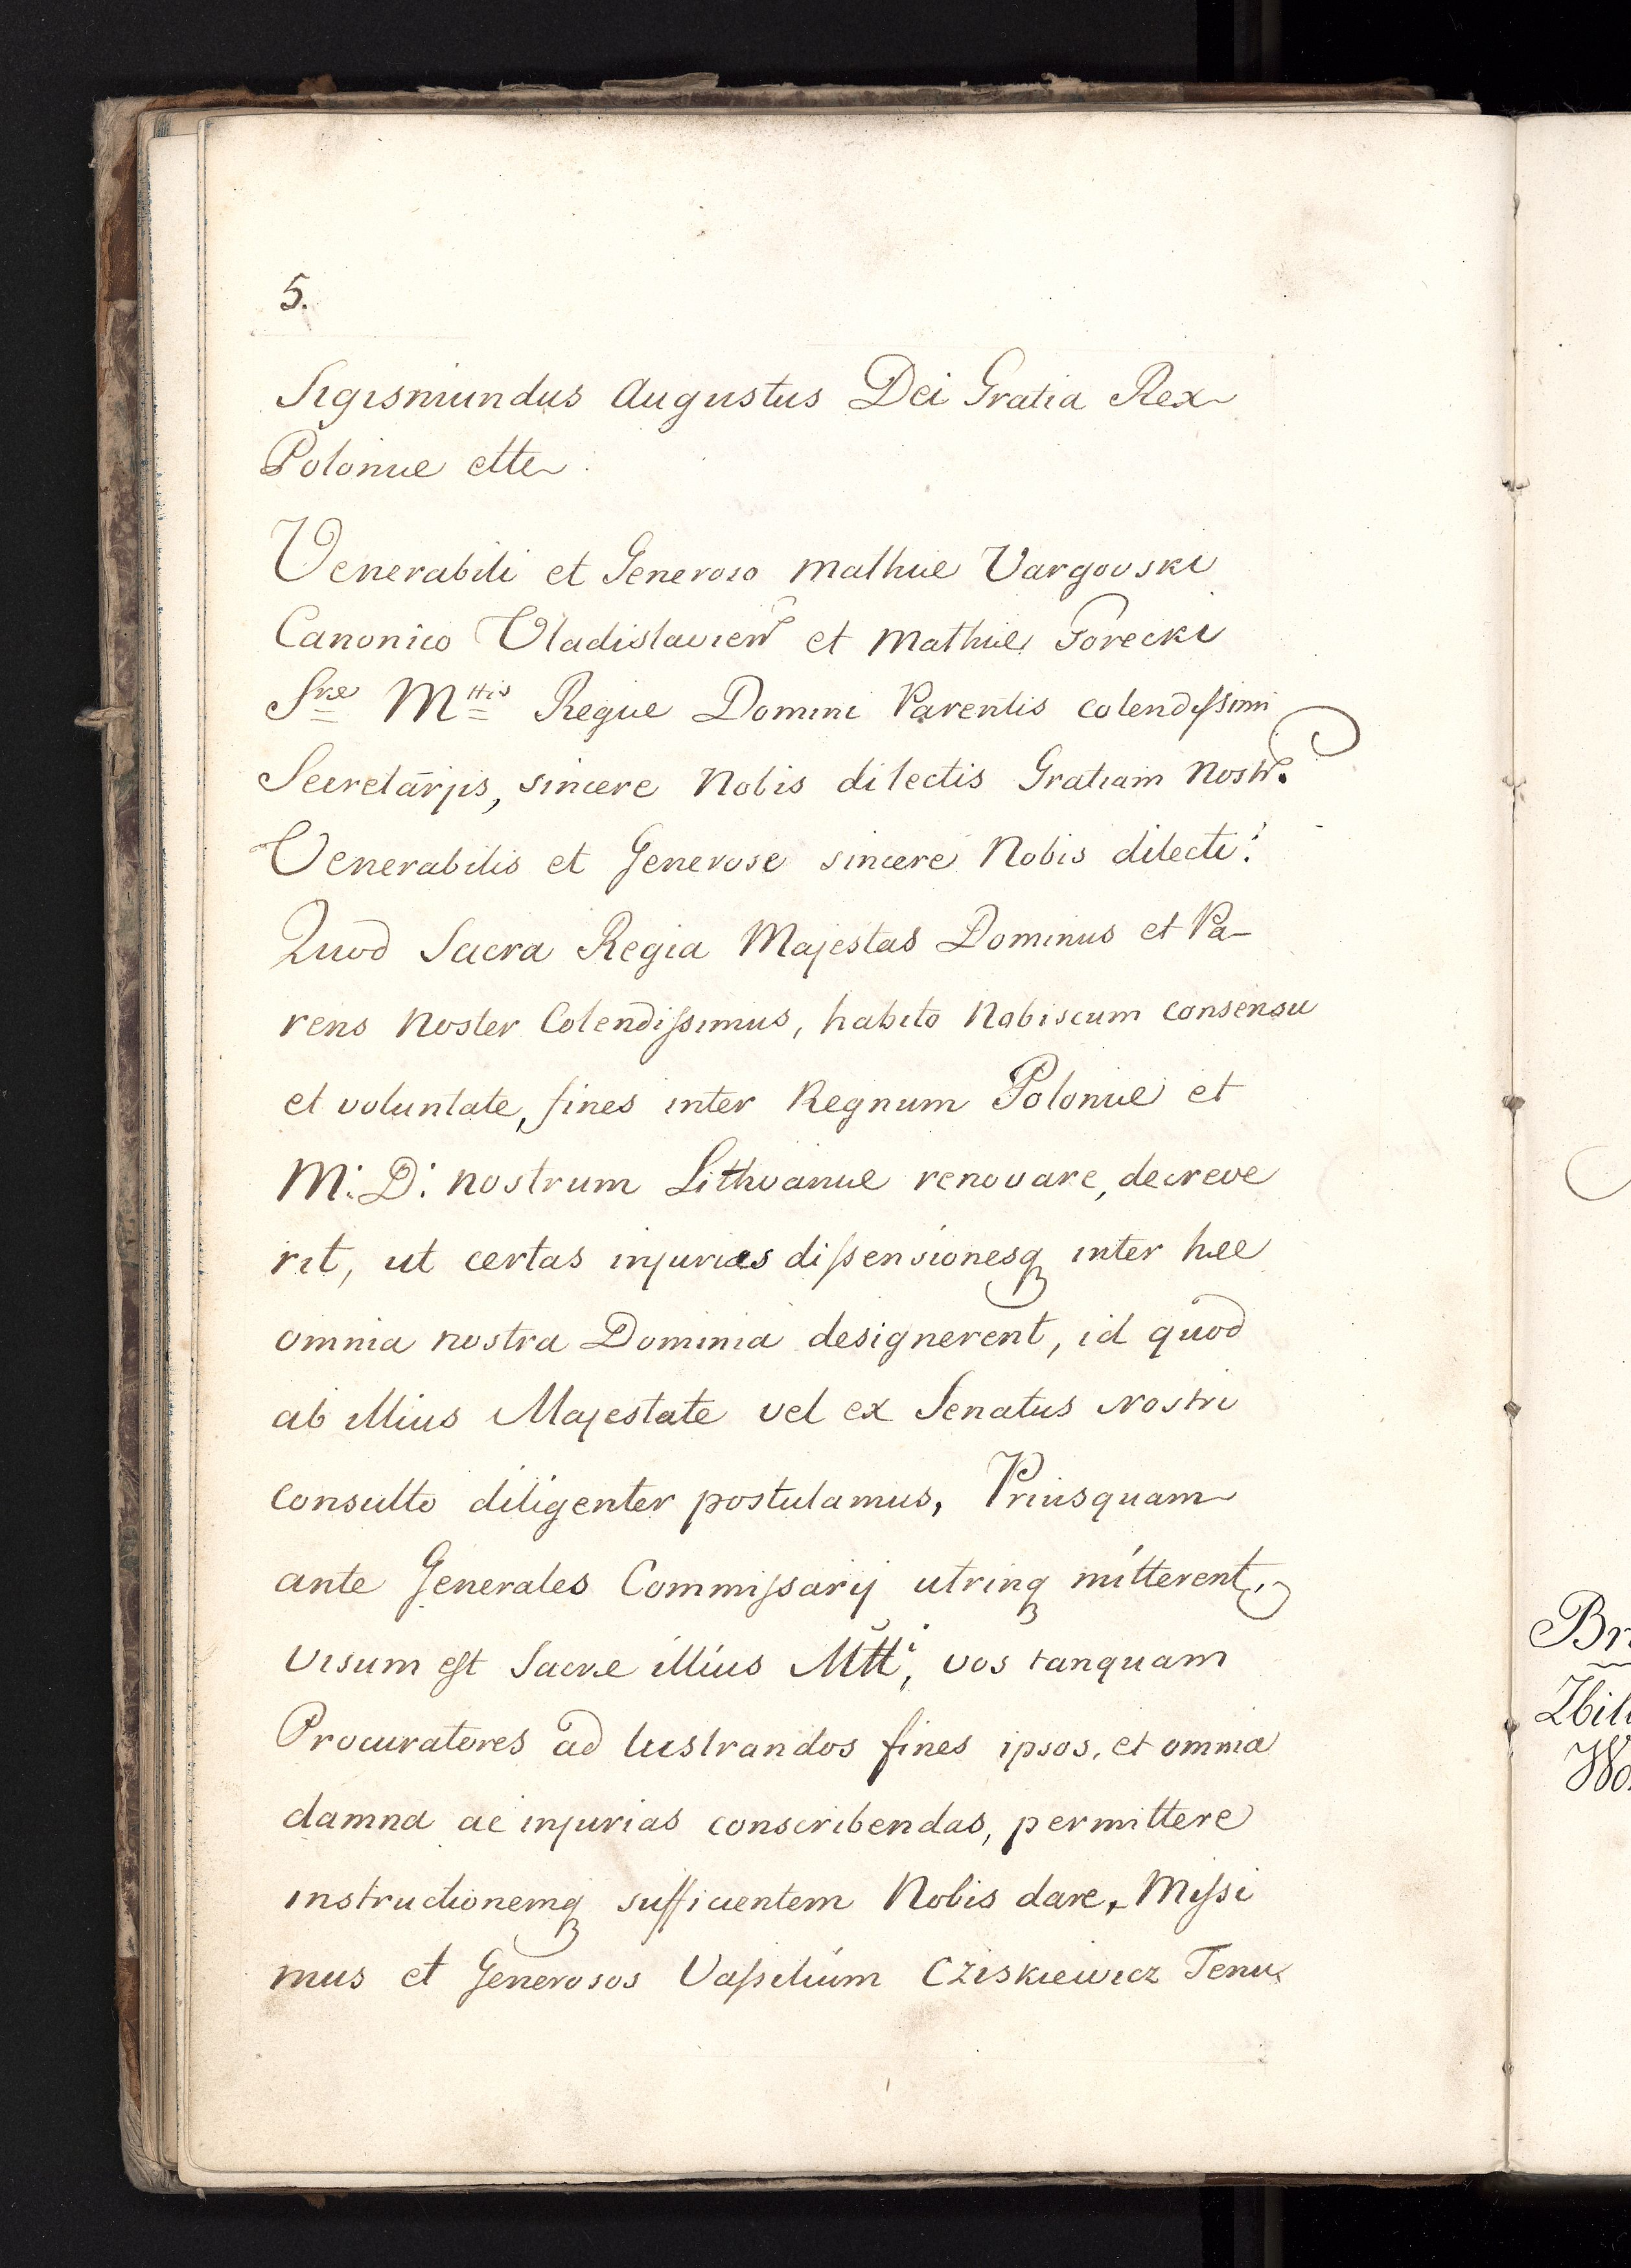 5.
Sigismundus Augustus Dei Gratia Rex
Poloniæ ettc
Venerabili et Generoso Mathiæ Vargovski
Canonico Vladislavien et Mathiæ Gorecki
Sræ Mttis Regiæ Domini Parentis colendissimi
Secretarijs, sincere Nobis dilectis Gratiam Nostr.
Venerabilis et Generose sincere Nobis dilecti!
Quod Sacra Regia Majestas Dominus et Pa-
rens Noster Colendissimus, habito Nobiscum consensu
et voluntate, fines inter Regnum Poloniæ et
M: D: nostrum Lithvaniæ renovare, decreve
rit, ut certas injurias dissensionesq inter hæc
omnia nostra Dominia designerent, id quod
ab illius Majestate vel ex Senatus Nostri
consulto diligenter postulamus, Priusquam
ante Generales Commissarij utrinq mitterent,
visum est Sacræ illius Mtti, vos tanquam
Procuratores ad lustrandos fines ipsos, et omnia
damna ac injurias conscribendas, permittere
instructionemq sufficientem Nobis dare, Missi
mus et Generosos Vassilium Cziskiewicz Tenu
Br
Zbil
Wo